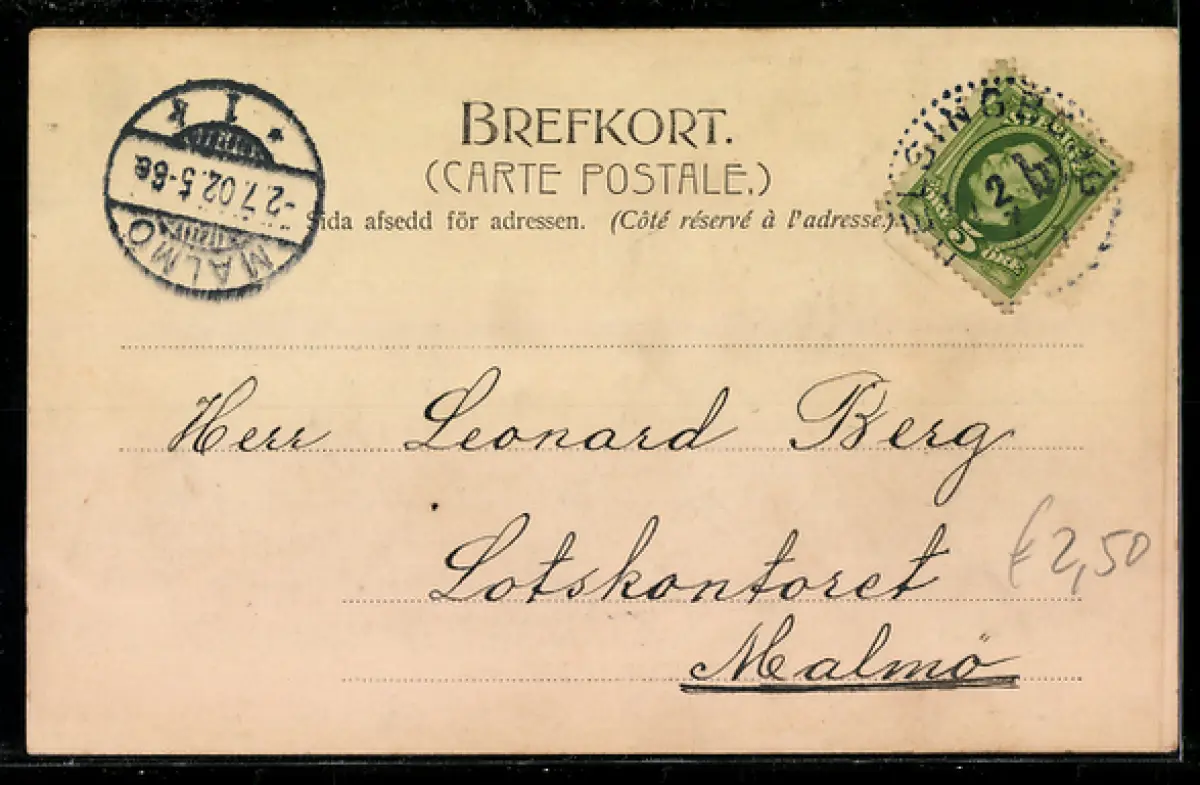 BREFKORT.
(CARTE POSTALE.)
Sida afsedd för adressen. (Côté réservé à l'adresse.)
* 1 k
-2.7.02.5-6e
MALMÖ
5 ÖRE
2
Herr Leonard Berg
Lotskontoret
Malmö
£2,50